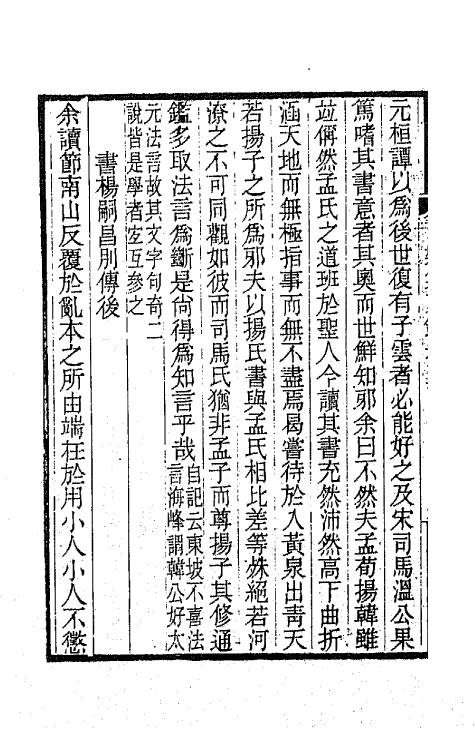 元桓譚以爲後世復有子雲者必能好之及宋司馬溫公果
篤嗜其書意者其奧而世鮮知邪余曰不然夫孟荀揚韓雖
竝偁然孟氏之道班於聖人今讀其書充然沛然高下曲折
涵天地而無極指事而無不盡焉曷嘗待於入黃泉出靑天
若揚子之所爲邪夫以揚氏書與孟氏相比差等殊絕若河
潦之不可同觀如彼而司馬氏猶非孟子而尊揚子其修通
鑑多取法言爲斷是尚得爲知言乎哉自記云東坡不喜法
言海峰謂韓公好太
元法言故其文字句奇二
說皆是學者宐互參之
書楊嗣昌別傳後
余讀節南山反覆於亂本之所由端在於用小人小人不懲